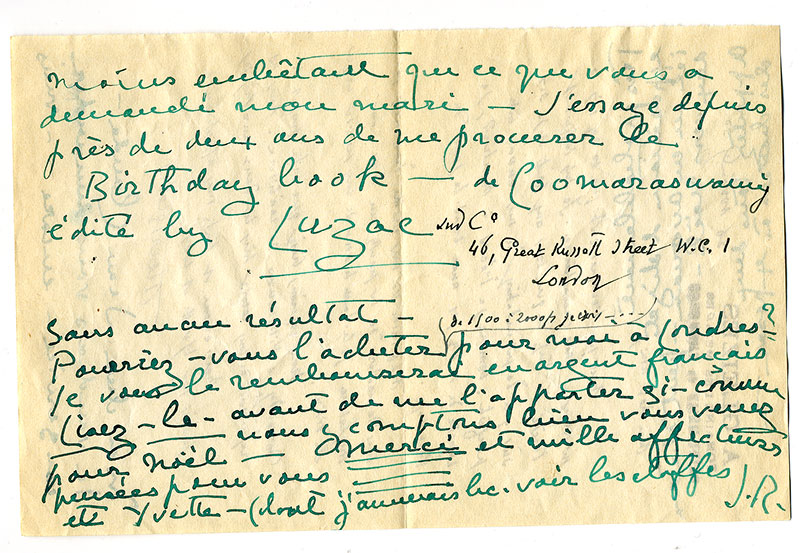 moins embêtant que ce que vous a
demandé mon mari — J'essaye depuis
près de deux ans de me procurer le
Birthday book — de Coomaraswamy
édité by Luzac and Co
46, Great Russell Street W.C. 1
London
Sans aucun résultat —
(de 1500 à 2000 p
Pourriez-vous l'acheter pour moi à Londres?
Je vous le rembourserai en argent français
Lisez-le- avant de me l'apporter si- comme
nous comptons bien vous venez
pour noël — merci et mille affectueuses
pensées pour vous
et Yvette — (dont j'aimerais bc. voir les
J.R.